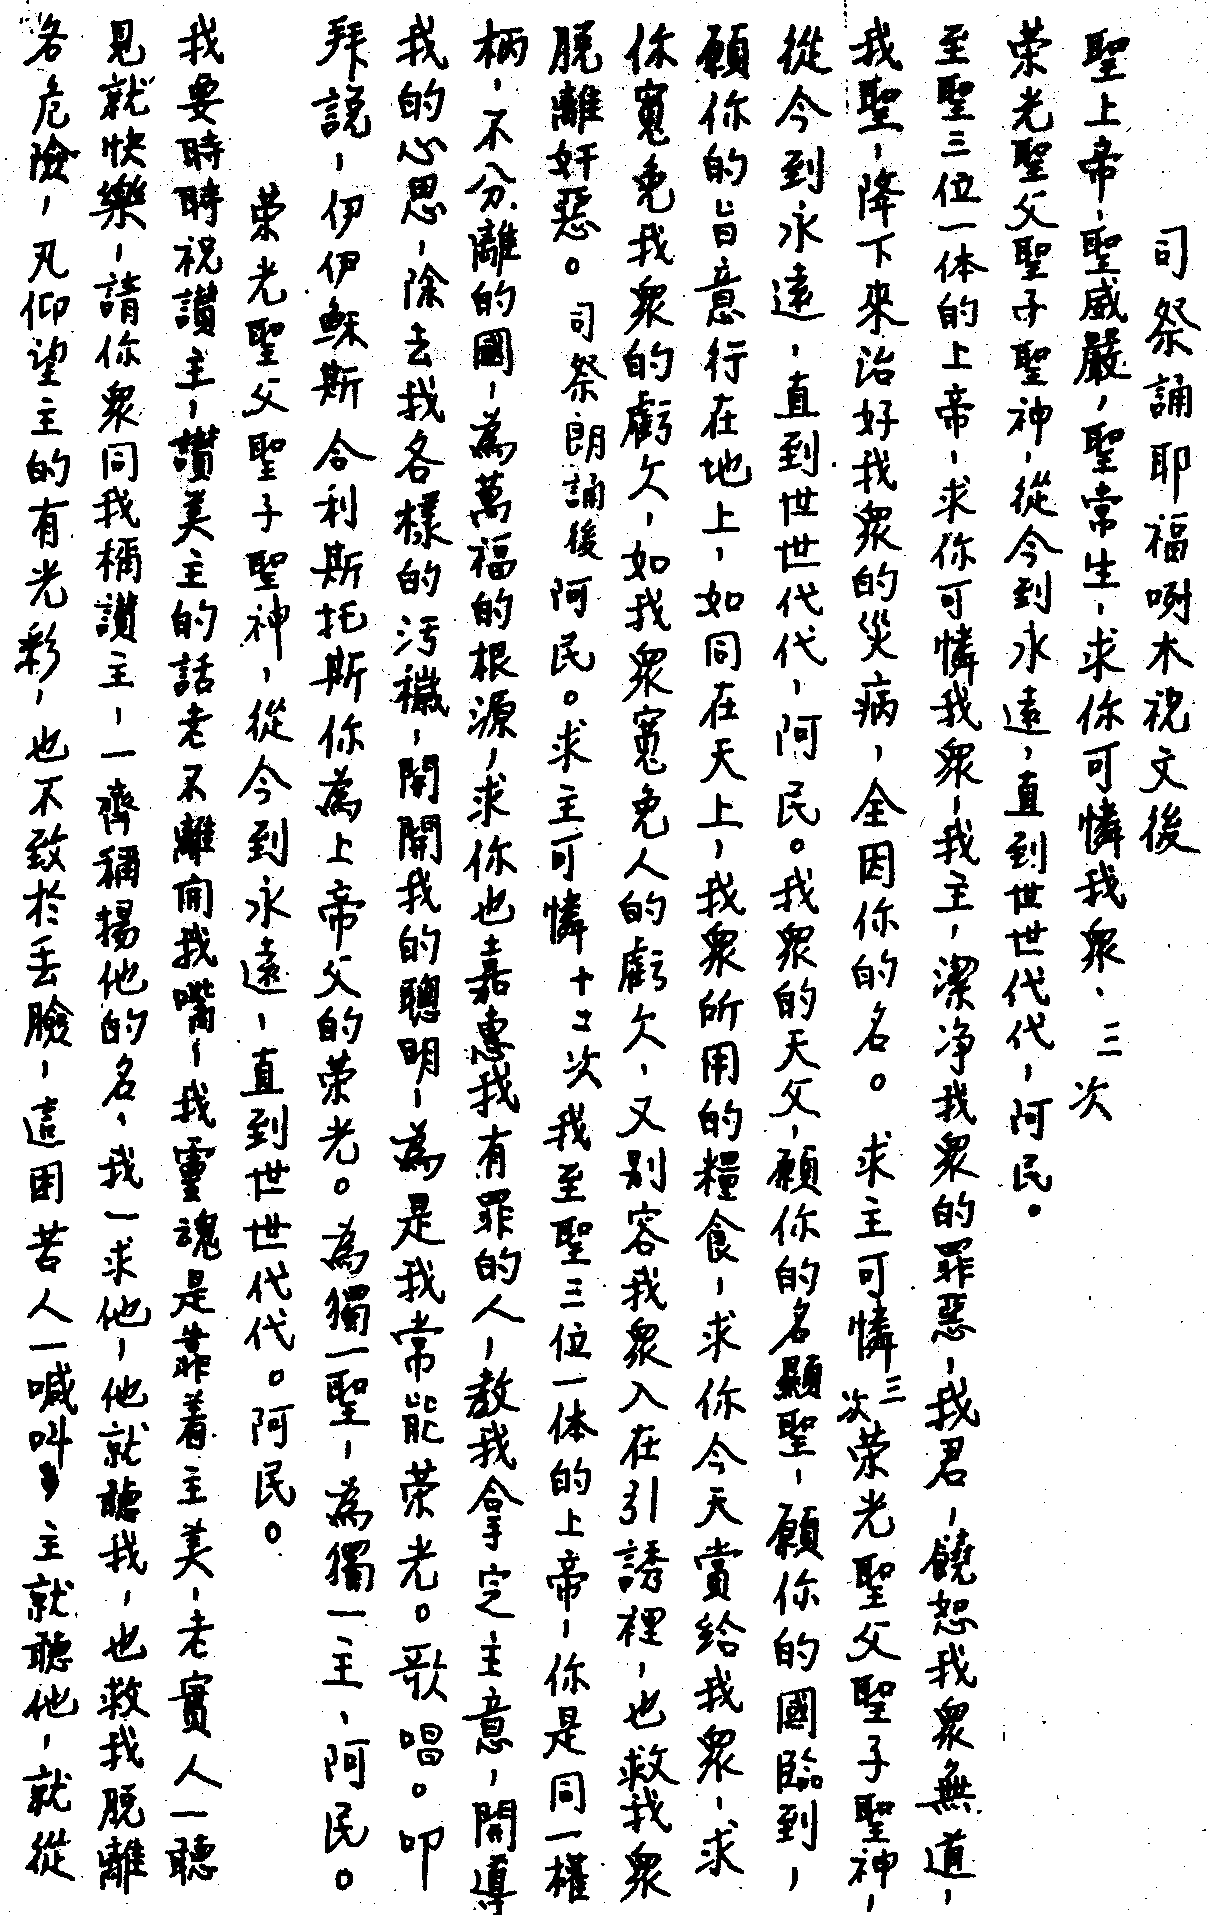 司祭誦耶福咧木祝文後
聖上帝、聖威嚴，聖常生、求你可憐我衆、三次
荣光聖父聖子聖神、從今到永遠，直到世世代代，阿民。
至聖三位一体的上帝、求你可憐我衆、我主，潔净我衆的罪惡，我君，饒恕我衆無道，
我聖，降下來治好我衆的災病，全因你的名。求主可憐三次荣光聖父聖子聖神，
從今到永遠，直到世世代代，阿民。我衆的天父，願你的名顯聖、願你的國臨到，
願你的旨意行在地上，如同在天上，我衆所用的糧食，求你今天賞給我衆、求
你寬免我衆的虧欠，如我衆寬免人的虧欠、又别容我衆入在引誘裡，也救我衆
脱離奸惡。司祭朗誦後阿民。求主可憐十二次我至聖三位一体的上帝、你是同一權
柄，不分離的國，為萬福的根源，求你也嘉惠我有罪的人，教我拿定主意，開導
我的心思，除去我各樣的污穢，開開我的聰明，為是我常能荣光。歌唱。叩
拜說，伊伊穌斯合利斯托斯你為上帝父的荣光。為獨一聖，為獨一主、阿民。
荣光聖父聖子聖神，從今到永遠，直到世世代代。阿民。
我要時時祝讃主，讃美主的話老不離開我嘴，我靈魂是靠着主美，老實人一聽
見就快樂，請你衆同我稱讃主，一齊稱揚他的名、我一求他，他就聽我，也救我脱離
各危險，凡仰望主的有光彩，也不致於丢臉，這困苦人一喊叫，主就聽他，就從